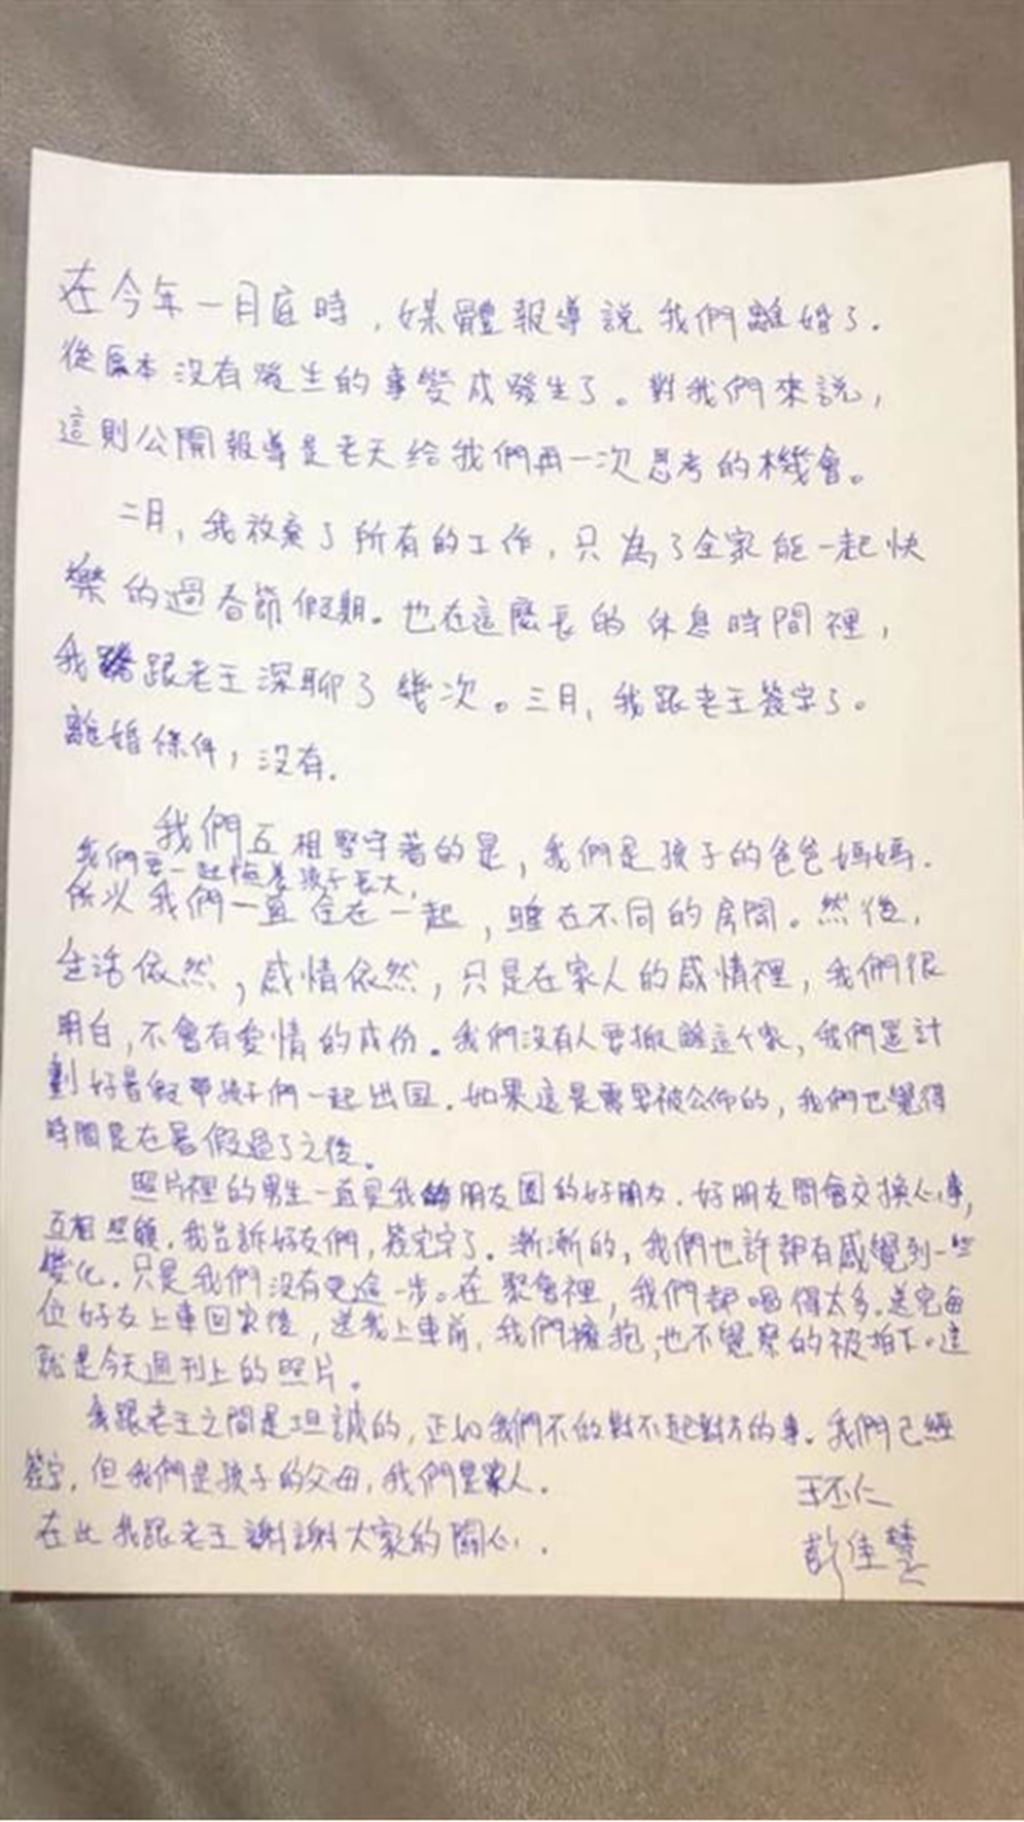 在今年一月底時，媒體報導說我們離婚了．
從原本沒有發生的事變成發生了。對我們來說，
這則公開報導是老天給我們再一次思考的機會。
二月，我放棄了所有的工作，只為了全家能一起快
樂的過春節假期。也在這麼長的休息時間裡，
我跟老王深聊了幾次。三月，我跟老王簽字了。
離婚條件，沒有．
我們互相堅守著的是，我們是孩子的爸爸媽媽．
我們要一起陪著孩子長大，
所以我們一直住在一起，睡在不同的房間。然後，
生活依然，感情依然，只是在家人的感情裡，我們很
明白，不會有愛情的成份。我們沒有人要搬離這个家，我們還計
劃好暑假帶孩子們一起出国．如果這是需要被公佈的，我們也覺得
時間是在暑假過了之後。
照片裡的男生一直是我朋友圈的好朋友．好朋友間會交換心事，
互相照顧．我告訴好友們，簽完字了．漸漸的，我們也許都有感覺到一些
變化．只是我們沒有更進一步。在聚會裡，我們都喝得太多．送完每
位好友上車回家後，送我上車前，我們擁抱，也不覺察的被拍下。這
就是今天週刊上的照片。
我跟老王之間是坦誠的，正如我們不做對不起對方的事．我們已經
簽字，但我們是孩子的父母，我們是家人．
在此我跟老王謝謝大家的關心．
王丕仁
彭佳慧